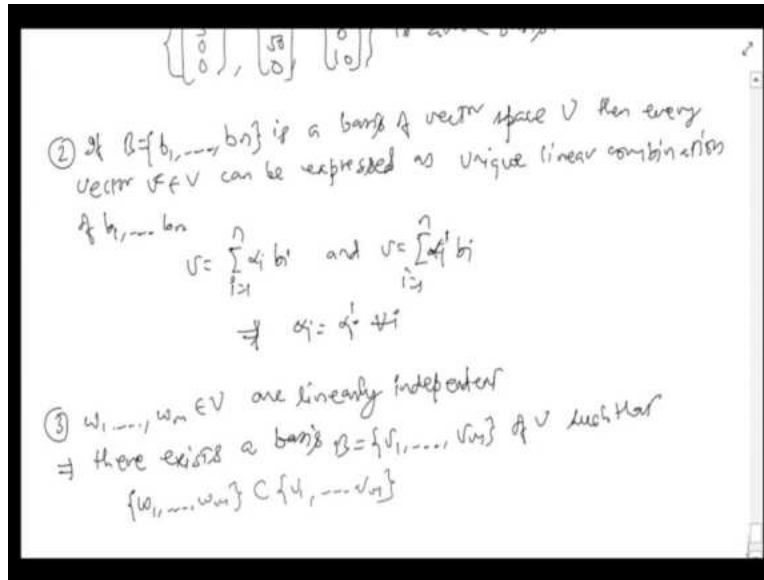 {(5 0 0), (50 0), (0 10)} is
② If B={b1,...,bn} is a basis of vector space V then every
vector v∈V can be expressed as unique linear combination
of b1,...bn
v= Σ_{i=1}^{n} αi bi and v= Σ_{i=1}^{n} αi' bi
⇒ αi = αi' ∀i
③ w1,...,wm ∈V are linearly indepentent
⇒ there exists a basis B={v1,...,vn} of V such that
{w1,...,wm} ⊂ {v1,...vn}